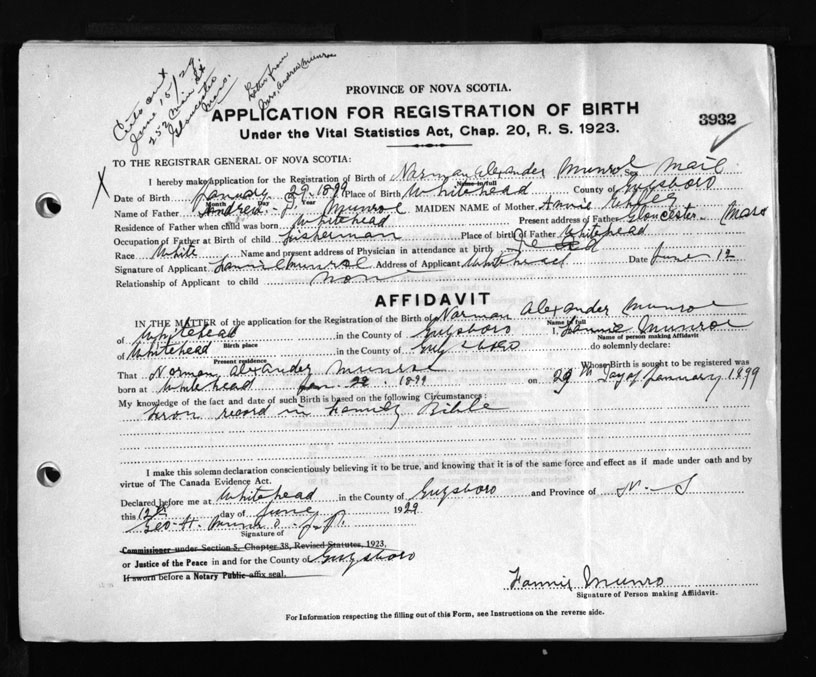 Cert out
June 15/29
252 Main St
Gloucester
Mass.
Letter from
Mrs. Andrew Munroe
PROVINCE OF NOVA SCOTIA.
APPLICATION FOR REGISTRATION OF BIRTH
3932
Under the Vital Statistics Act, Chap. 20, R. S. 1923.
TO THE REGISTRAR GENERAL OF NOVA SCOTIA:
I hereby make application for the Registration of Birth of Norman Alexander Munroe Sex Mail
Name in full
Date of Birth January 29. 1899 Place of Birth Whitehead County of Guysboro
Month Day Year
Name of Father Andrew J. Munroe MAIDEN NAME of Mother Annie
Residence of Father when child was born Whitehead Present address of Father Gloucester Mass
Occupation of Father at Birth of child fisherman Place of birth of Father Whitehead
Race White Name and present address of Physician in attendance at birth
Signature of Applicant Fannie Munroe Address of Applicant Whitehead Date June 12
Relationship of Applicant to child none
AFFIDAVIT
IN THE MATTER of the application for the Registration of the Birth of Norman Alexander Munroe
Name in full
of Whitehead in the County of Guysboro I, Fannie Munroe
Birth place Name of person making Affidavit
of Whitehead in the County of Guysboro do solemnly declare:
Present residence
That Norman Alexander Munroe Whose Birth is sought to be registered was
born at Whitehead Jan. 29 1899 on 29th day of January 1899
My knowledge of the fact and date of such Birth is based on the following Circumstances:
from record in Family Bible
I make this solemn declaration conscientiously believing it to be true, and knowing that it is of the same force and effect as if made under oath and by
virtue of The Canada Evidence Act.
Declared before me at Whitehead in the County of Guysboro and Province of N. S
this 12th day of June 1929
Geo. H. Munro J. P.
Signature of
Commissioner under Section 5, Chapter 38, Revised Statutes, 1923,
or Justice of the Peace in and for the County of Guysboro
If sworn before a Notary Public affix seal.
Fannie Munro
Signature of Person making Affidavit.
For Information respecting the filling out of this Form, see Instructions on the reverse side.